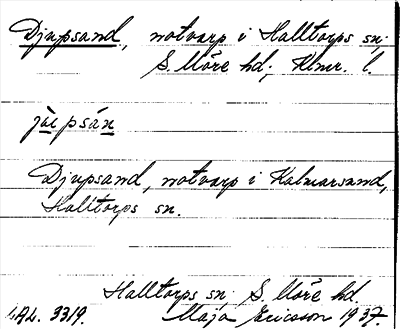 Djupsand, notvarp i Halltorps sn.
S. Möre hd, Klmr. l.
jùpsán
Djupsand, notvarp i Kalmarsund,
Halltorps sn.
Halltorps sn. S. Möre hd.
ULL. 3319. Maja Ericsson 1937.